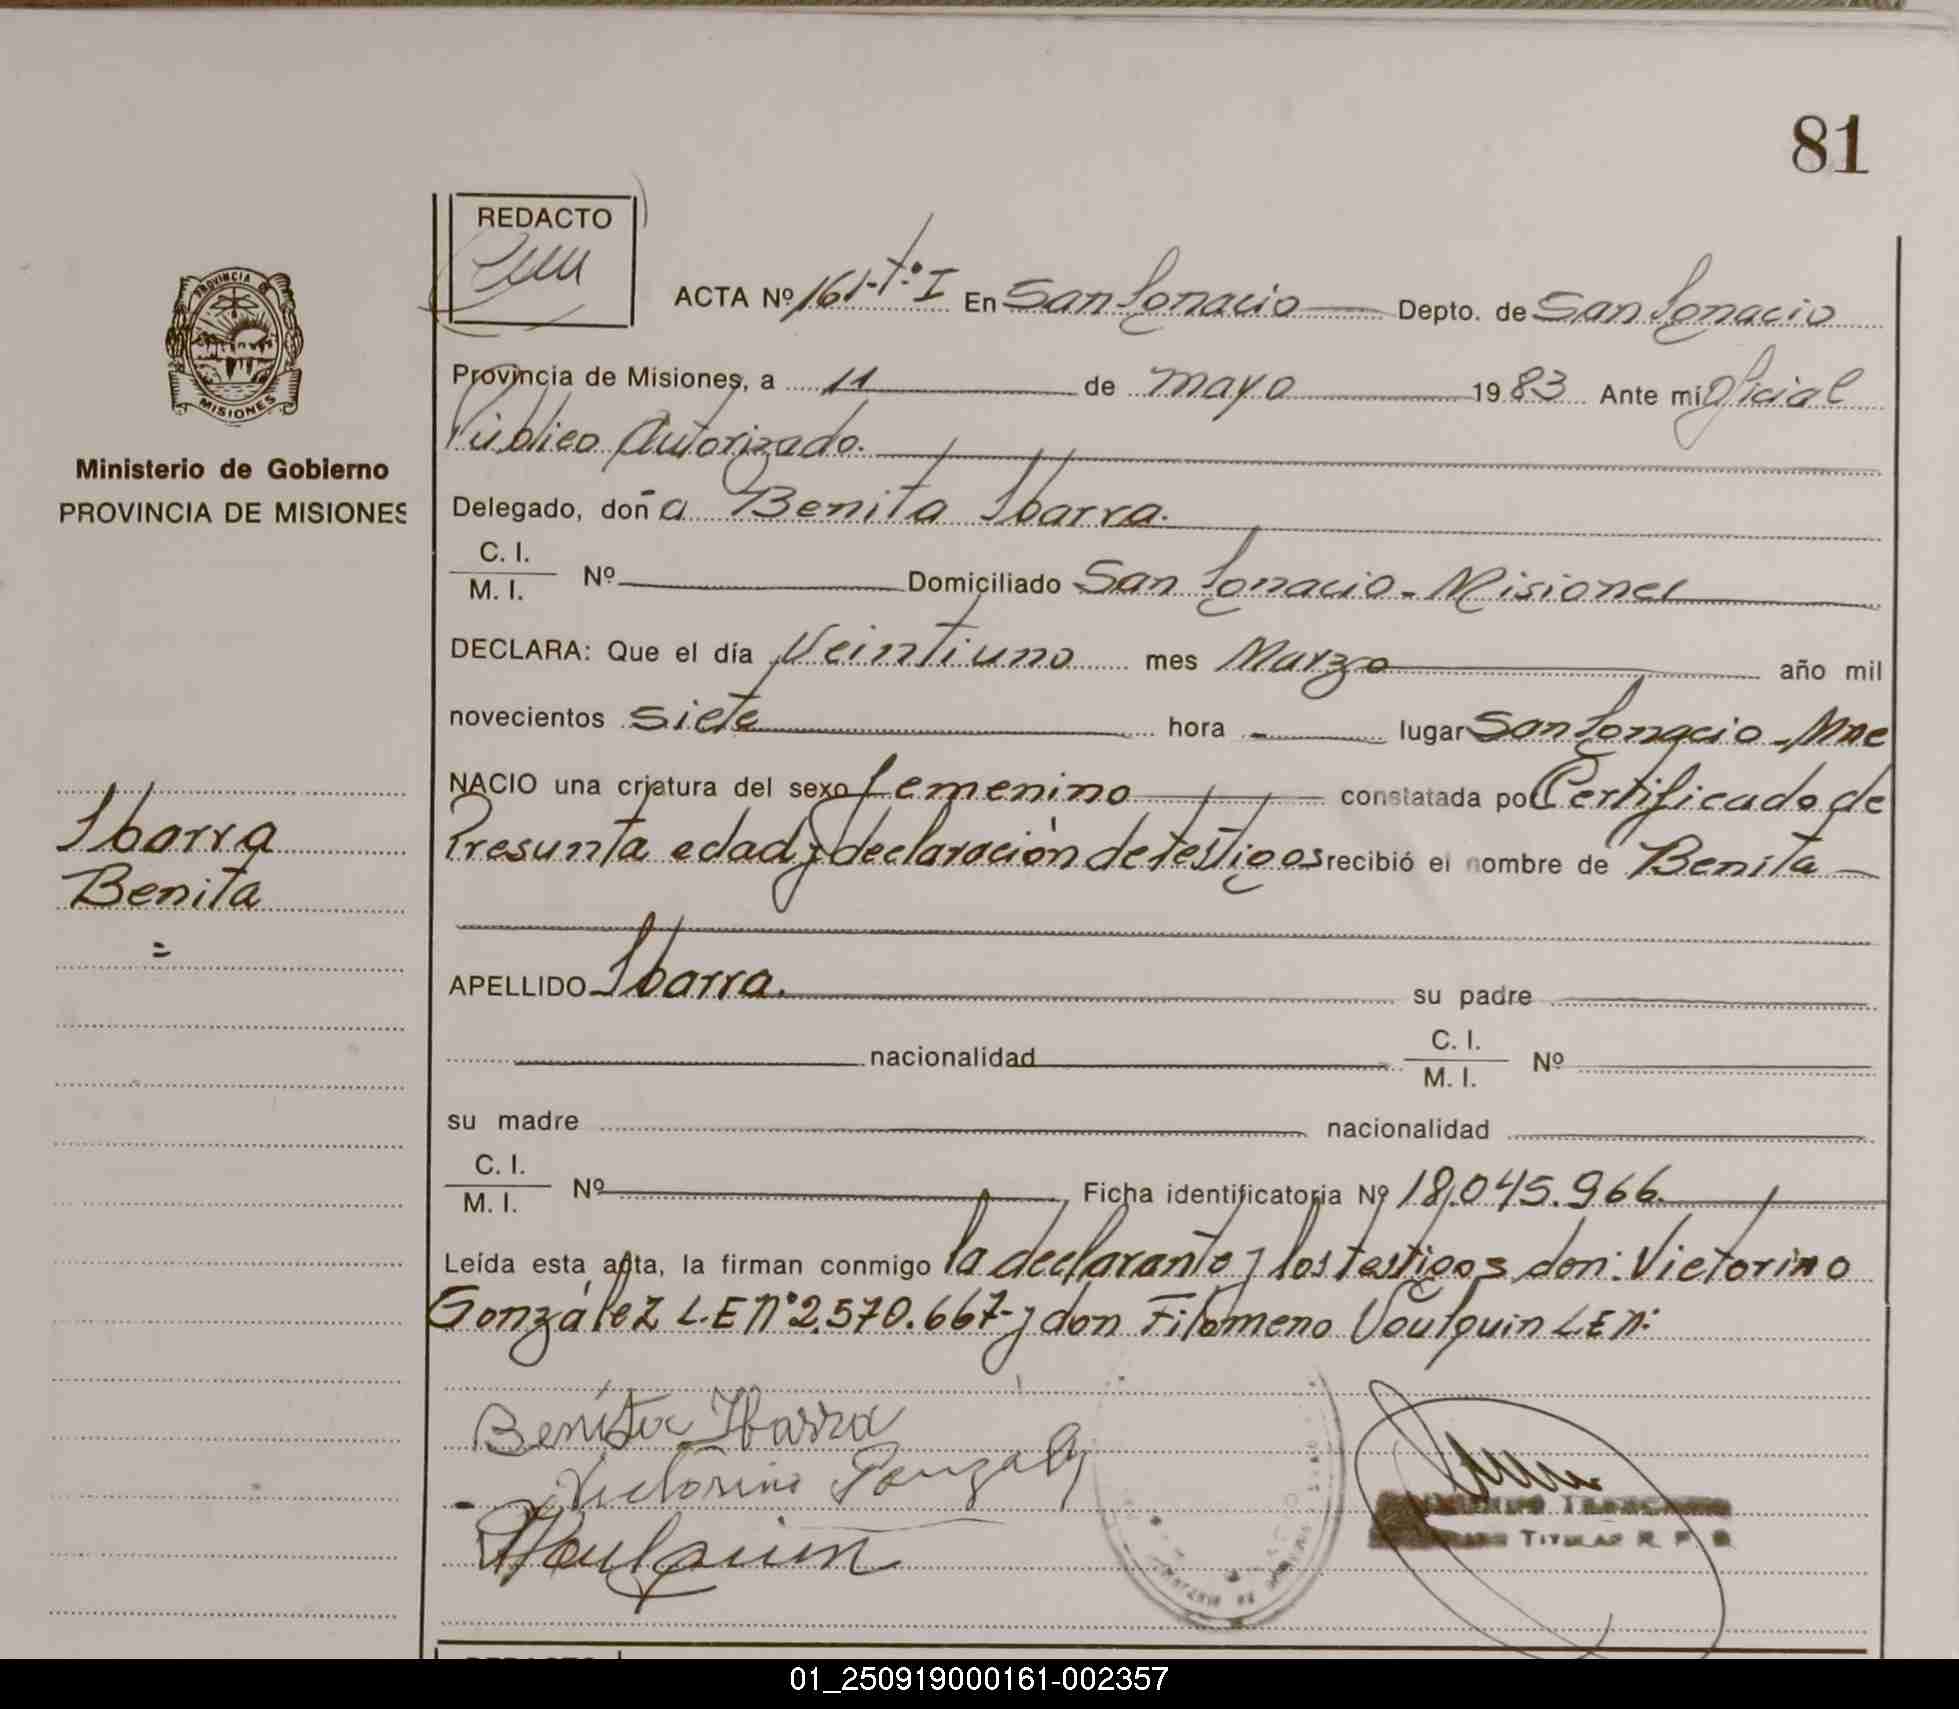 81
REDACTO
PROVINCIA DE
MISIONES
Ministerio de Gobierno
PROVINCIA DE MISIONES
Ibarra
Benita
=
ACTA Nº 161-tº I En San Ignacio Depto. de San Ignacio
Provincia de Misiones, a 11 de mayo 1983 Ante mi Oficial
Público Autorizado.
Delegado, doña Benita Ibarra.
C. I.
M. I. Nº Domiciliado San Ignacio - Misiones
DECLARA: Que el día Veintiuno mes Marzo año mil
novecientos siete hora - lugar San Ignacio - Mnes
NACIO una criatura del sexo femenino constatada por Certificado de
Presunta edad y declaración de testigos recibió el nombre de Benita
APELLIDO Ibarra. su padre
nacionalidad C. I.
M. I. Nº
su madre nacionalidad
C. I.
M. I. Nº Ficha identificatoria Nº 18.045.966
Leída esta acta, la firman conmigo la declarante y los testigos don: Victorino
González L.E Nº 2.570.667- y don Filomeno Voulquin L.E Nº
Benita Ibarra
Victorino Gonzalez
Voulquin
TITULAR R. P.
REDACTO
01_250919000161-002357